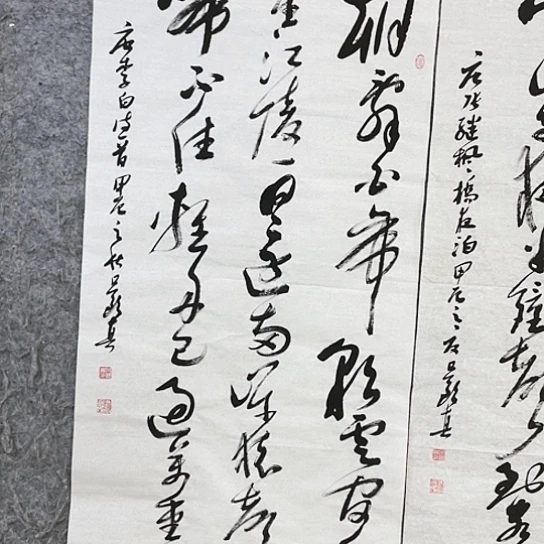 山寺夜半鐘声到客
唐张继枫桥夜泊甲辰之
朝辞白帝彩云间
里江陵一日还两岸猿声
啼不住轻舟已过万重
唐李白诗一首甲辰之秋